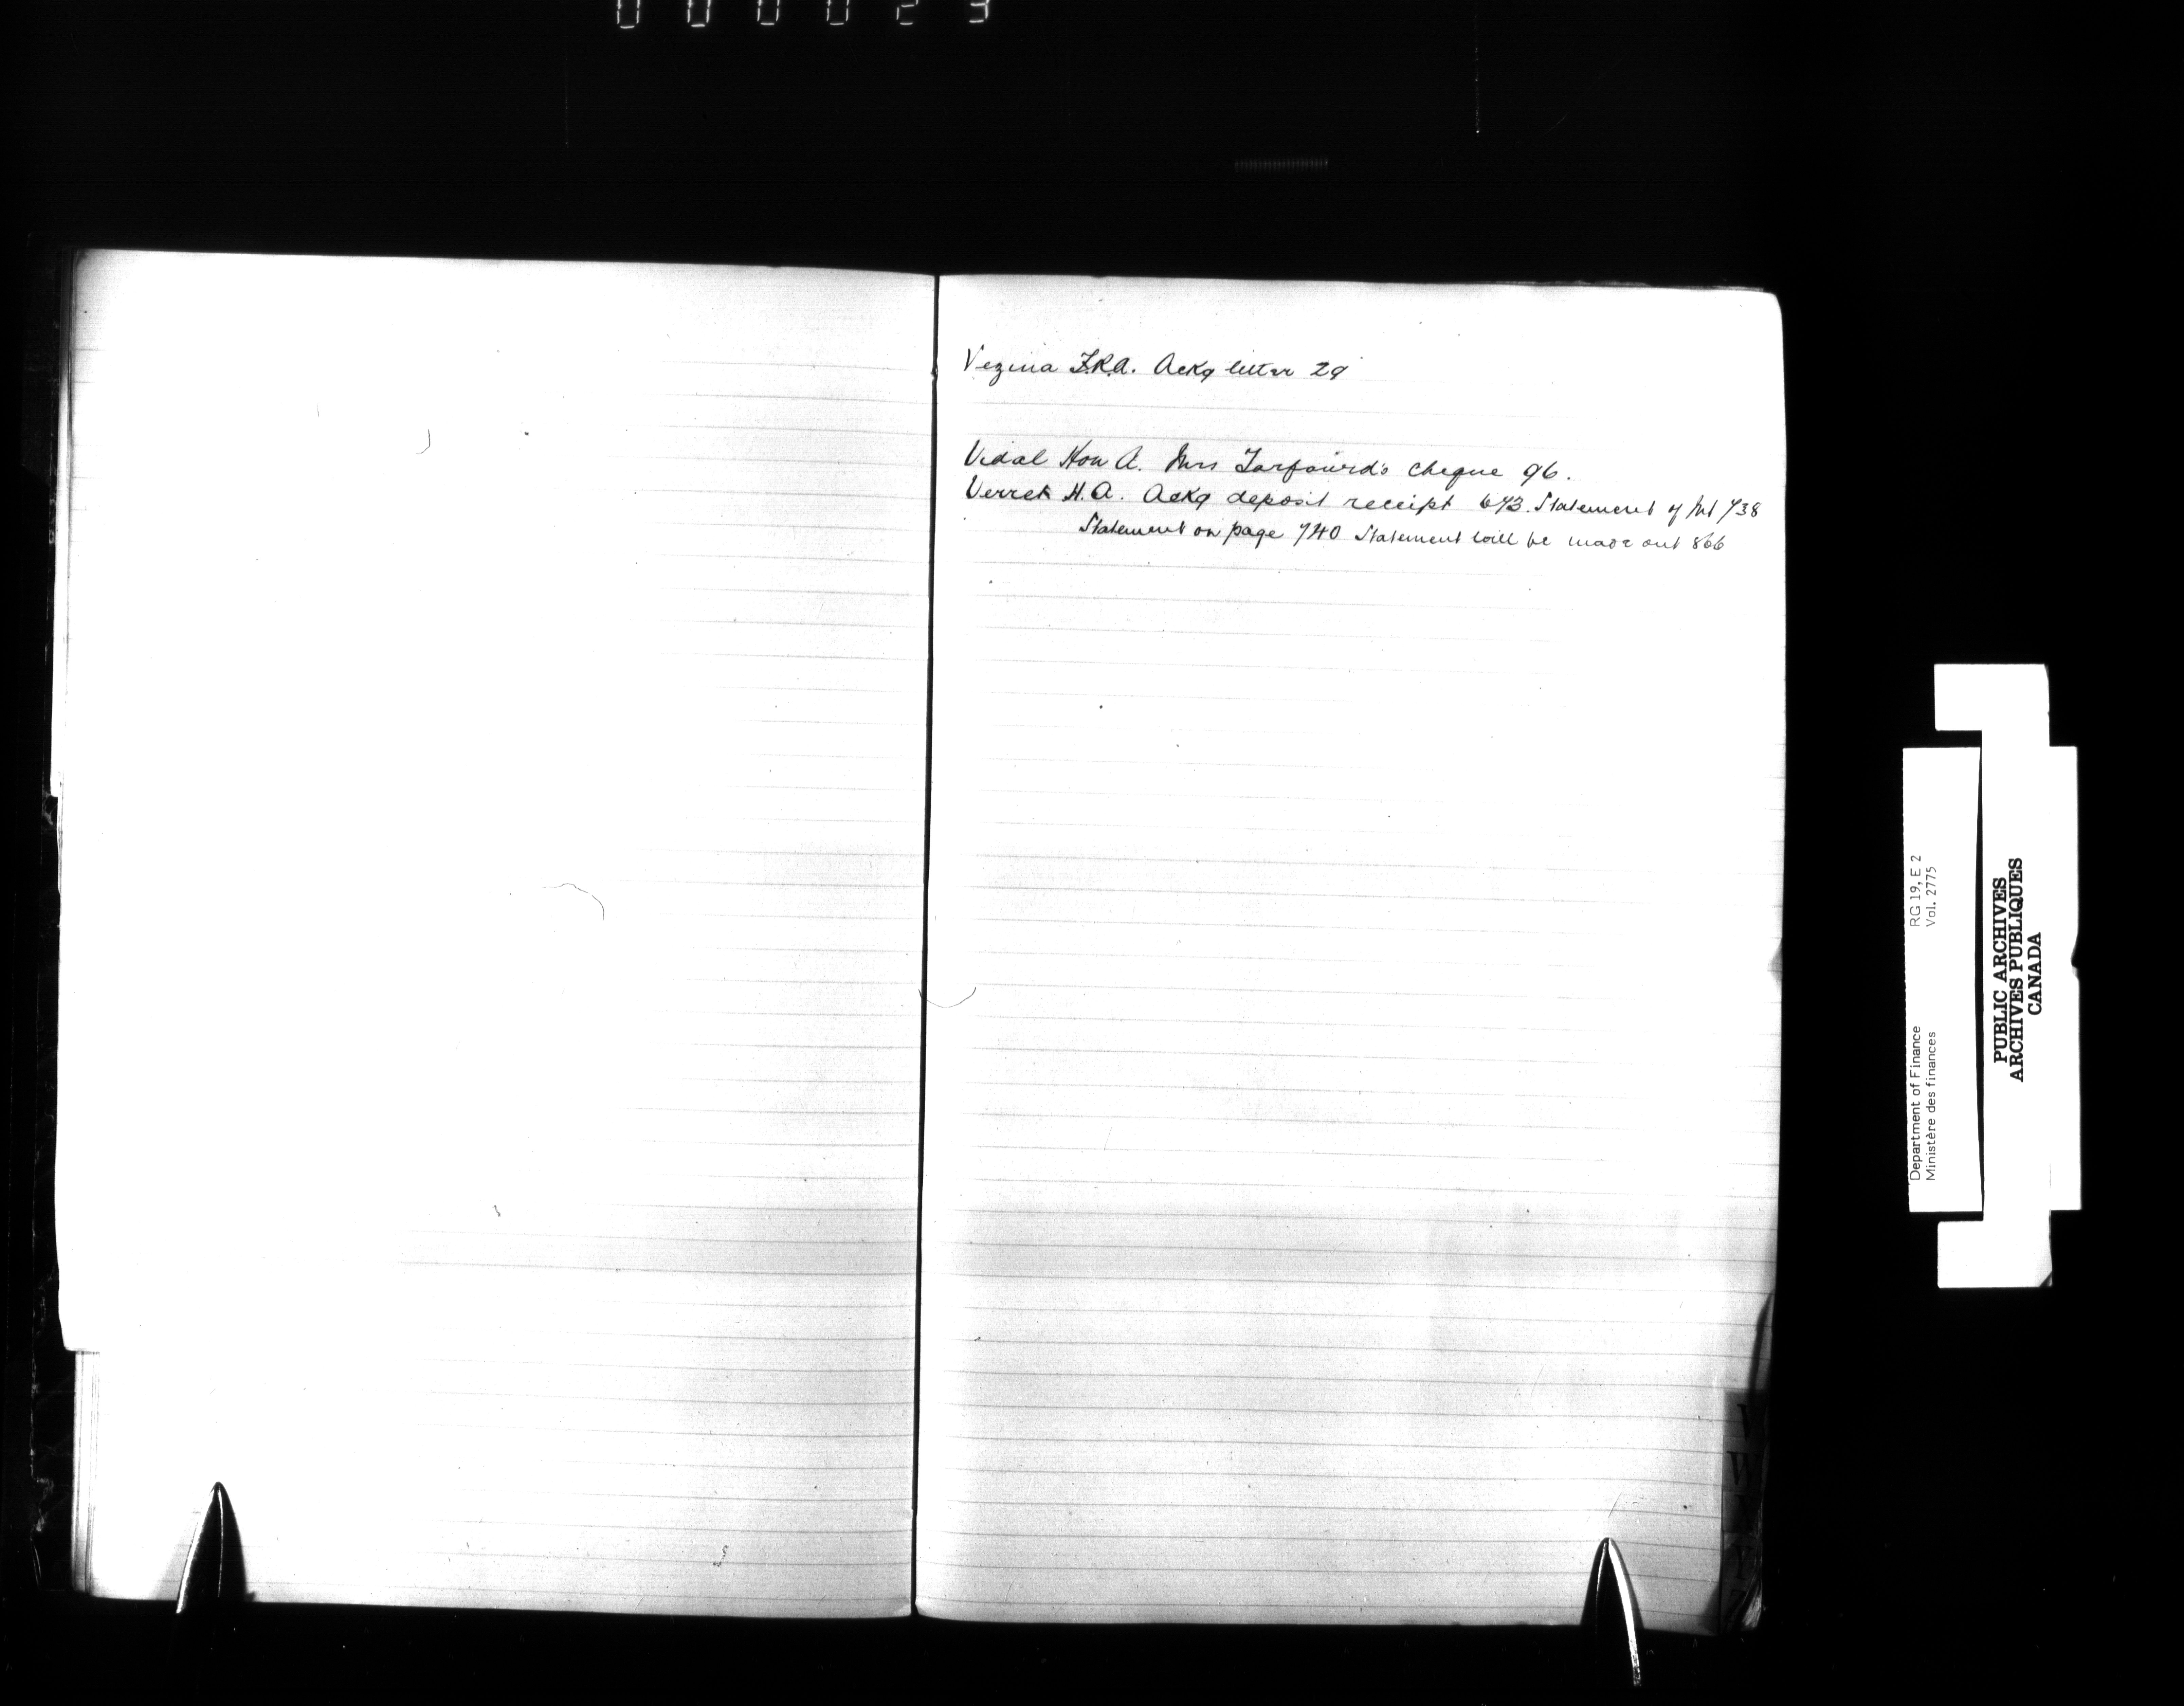 000023
Vezina F.R.A. Ackg letter 29
Vidal Hon A. Mrs cheque 96.
Verret H.A. Ackg deposit receipt 673. Statement of Int 738
Statement on page 740 Statement will be made out 866
RG 19, E 2
Vol. 2775
Department of Finance
Ministère des finances
PUBLIC ARCHIVES
ARCHIVES PUBLIQUES
CANADA
V
W
X
Y
Z